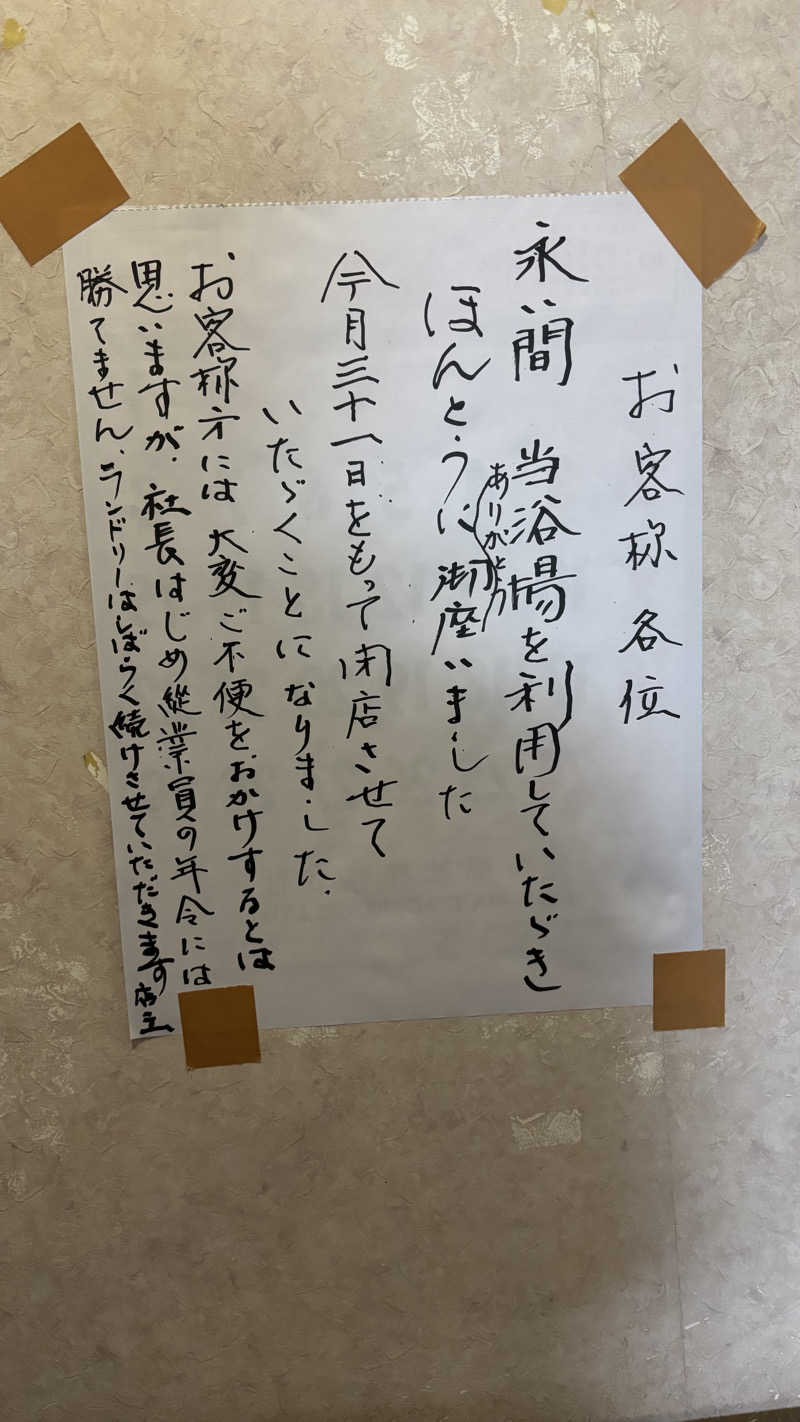 お客様各位
永い間　当浴場を利用していたゞき
ほんとうにありがとう御座いました
今月三十一日をもって閉店させて
いたゞくことになりました.
お客様方には大変ご不便をおかけするとは
思いますが、社長はじめ縦業員の年令には
勝てません、ランドリーはしばらく続けさせていただきます 店主